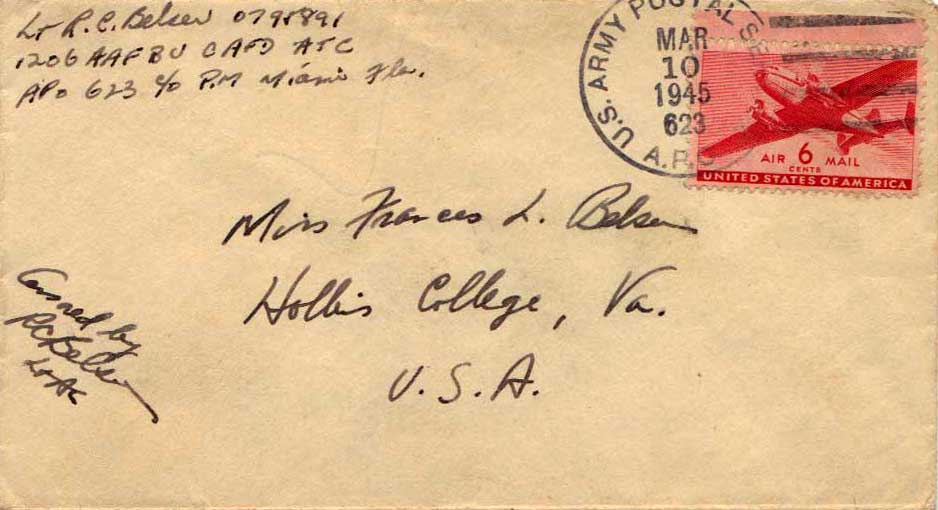 Lt R. C. Belser 0798891
1206 AAFBU CAFD ATC
APO 623 c/o P.M Miami Fla.
U.S. ARMY POSTAL
MAR
10
1945
623
A.P.O.
AIR 6 MAIL
CENTS
UNITED STATES OF AMERICA
Miss Frances L. Belser
Hollins College, Va.
U.S.A.
Censored by
RC Belser
Lt AC